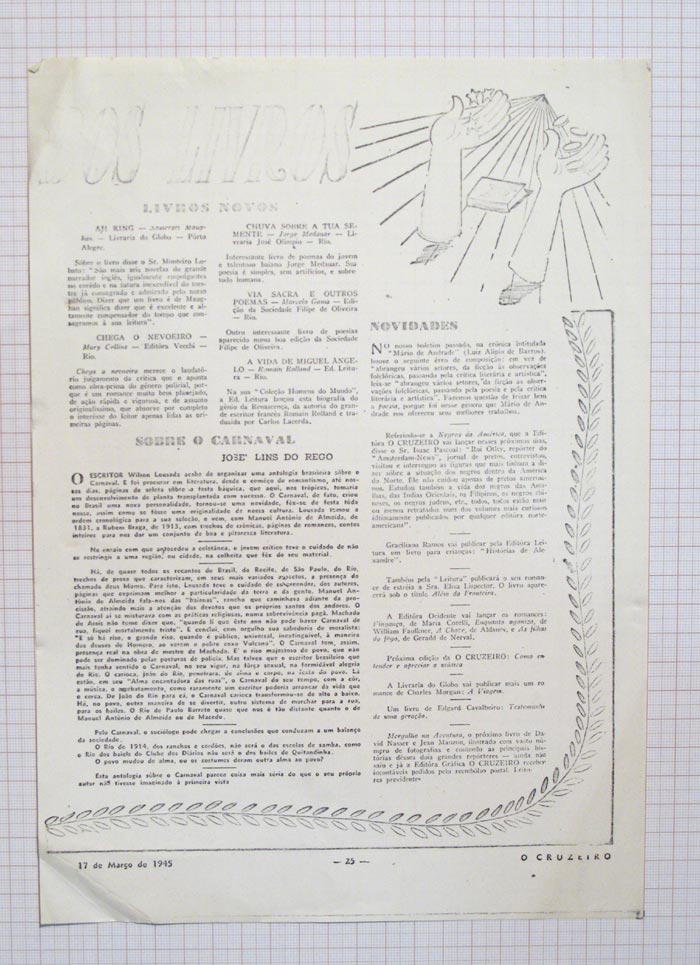 DOS LIVROS
LIVROS NOVOS
AJI KING — Somerset Maug-
ham — Livraria do Globo — Pôrto
Alegre.
Sôbre o livro disse o Sr. Monteiro Lo-
bato: "São mais seis novelas do grande
narrador inglês, igualmente empolgantes
no enrêdo e na fatura inexcedível do mes-
tre já consagrado e admirado pelo nosso
público. Dizer que um livro é de Maug-
han significa dizer que é excelente e al-
tamente compensador do tempo que con-
sagramos à sua leitura".
CHEGA O NEVOEIRO —
Mary Collins — Editôra Vecchi —
Rio.
Chega o nevoeiro merece o laudató-
rio julgamento da crítica que o aponta
como obra-prima do gênero policial, por-
que é um romance muito bem planejado,
de ação rápida e vigorosa, e de assunto
originalíssimo, que absorve por completo
o interêsse do leitor apenas lidas as pri-
meiras páginas.
CHUVA SOBRE A TUA SE-
MENTE — Jorge Medauar — Li-
vraria José Olimpio — Rio.
Interessante livro de poemas do jovem
e talentoso baiano Jorge Medauar. Sua
poesia é simples, sem artifícios, e sobre-
tudo humana.
VIA SACRA E OUTROS
POEMAS — Marcelo Gama — Edi-
ção da Sociedade Filipe de Oliveira
— Rio.
Outro interessante livro de poesias
aparecido numa boa edição da Sociedade
Filipe de Oliveira.
A VIDA DE MIGUEL ÂNGE-
LO — Romain Rolland — Ed. Leitu-
ra — Rio.
Na sua "Coleção Homens do Mundo",
a Ed. Leitura lançou esta biografia do
gênio da Renascença, da autoria do gran-
de escritor francês Romain Rolland e tra-
duzida por Carlos Lacerda.
SOBRE O CARNAVAL
JOSE' LINS DO REGO
O ESCRITOR Wilson Lousada acaba de organizar uma antologia brasileira sôbre o
Carnaval. E foi procurar em literatura, desde o comêço do romantismo, até nos-
sos dias, páginas de seleta sôbre a festa báquica, que aqui, nos trópicos, tomaria
um desenvolvimento de planta transplantada com sucesso. O Carnaval, de fato, criou
no Brasil uma nova personalidade, tornou-se uma novidade, fêz-se de festa tôda
nossa, assim como se fôsse uma originalidade de nossa cultura. Lousada tomou a
ordem cronológica para a sua seleção, e vem, com Manuel Antônio de Almeida, de
1831, a Rubem Braga, de 1915, com trechos de crônicas, páginas de romances, contos
inteiros para nos dar um conjunto de boa e pitoresca literatura.
No ensaio com que antecedeu a coletânea, o jovem crítico teve o cuidado de não
se restringir a uma região, ou cidade, na colheita que fêz do seu material.
Há, de quase todos os recantos do Brasil, do Recife, de São Paulo, do Rio,
trechos de prosa que caracterizam, em seus mais variados aspectos, a presença do
chamado deus Momo. Para isto, Lousada teve o cuidado de surpreender, dos autores,
páginas que exprimam melhor a particularidade da terra e da gente. Manuel An-
tônio de Almeida fala-nos das "baianas", rancho que caminhava adiante da pro-
cissão, atraindo mais a atenção dos devotos que os próprios santos dos andores. O
Carnaval aí se misturava com as práticas religiosas, numa sobrevivência pagã. Machado
de Assis não teme dizer que, "quando li que êste ano não pode haver Carnaval de
rua, fiquei mortalmente triste". E conclui, com orgulho sua sabedoria de moralista:
"E só há riso, o grande riso, quando é público, universal, inextinguível, à maneira
dos deuses de Homero, ao verem o pobre coxo Vulcano". O Carnaval tem, assim,
presença real na obra do mestre de Machado. E' o riso majestoso do povo, que não
pode ser dominado pelas posturas de polícia. Mas talvez que o escritor brasileiro que
mais tenha sentido o Carnaval, no seu vigor, na fôrça sexual, na formidável alegria
do Rio. O carioca, João do Rio, penetrara, de alma e corpo, na festa do povo. Lá
estão, em seu "Alma encantadora das ruas", o Carnaval do seu tempo, com a côr,
a música, o arrebatamento, como raramente um escritor poderia arrancar da vida que
o cerca. De João do Rio para cá, o Carnaval carioca transformou-se de alto a baixo.
Há, no povo, outra maneira de se divertir, outro sistema de marchar para a rua,
para os bailes. O Rio de Paulo Barreto quase que nos é tão distante quanto o de
Manuel Antônio de Almeida ou de Macedo.
Pelo Carnaval, o sociólogo pode chegar a conclusões que conduzam a um balanço
da sociedade.
O Rio de 1914, dos ranchos e cordões, não será o das escolas de samba, como
o Rio dos bailes do Clube dos Diários não será o dos bailes de Quitandinha.
O povo mudou de alma, ou os costumes deram outra alma ao povo?
Esta antologia sôbre o Carnaval parece coisa mais séria do que o seu próprio
autor não tivesse imaginado à primeira vista
NOVIDADES
NO nosso boletim passado, na crônica intitulada
"Mário de Andrade" (Luiz Alípio de Barros),
houve o seguinte êrro de composição: em vez de
"abrangeu vários setores, da ficção às observações
folclóricas, passando pela crítica literária e artística",
leia-se "abrangeu vários setores, da ficção às obser-
vações folclóricas, passando pela poesia e pela crítica
literária e artística". Fazemos questão de frisar bem
a poesia, porque foi nesse gênero que Mário de An-
drade nos ofereceu seus melhores trabalhos.
Referindo-se a Negros da América, que a Edi-
tôra O CRUZEIRO vai lançar nesses próximos dias,
disse o Sr. Isaac Pascoal: "Roi Otley, repórter do
"Amsterdam-News", jornal de pretos, entrevistou,
visitou e interrogou as figuras que mais tinham a di-
zer sôbre a situação dos negros dentro da América
do Norte. Ele não cuidou apenas de pretos america-
nos. Estudou também a vida dos negros das Anti-
lhas, das Índias Orientais, ou Filipinos, os negros chi-
neses, os negros judeus, etc., todos, todos estão mais
ou menos retratados num dos volumes mais curiosos
ùltimamente publicados por qualquer editôra norte-
americana".
Graciliano Ramos vai publicar pela Editôra Lei-
tura um livro para crianças: "Histórias de Ale-
xandre".
Também pela "Leitura" publicará o seu roman-
ce de estréia a Sra. Elisa Lispector. O livro apare-
cerá sob o título Além da Fronteira.
A Editôra Ocidente vai lançar os romances:
Vingança, de Maria Corelli, Enquanto agonizo, de
William Faulkner, A Chave, de Aldanov, e As filhas
do fogo, de Gerald de Nerval.
Próxima edição da O CRUZEIRO: Como en-
tender e apreciar a música
A Livraria do Globo vai publicar mais um ro-
mance de Charles Morgan: A Viagem.
Um livro de Edgard Cavalheiro: Testamento
de uma geração.
Mergulho na Aventura, o próximo livro de Da-
vid Nasser e Jean Manzon, ilustrado com vasto nú-
mero de fotografias e contendo as principais his-
tórias dêsses dois grandes repórteres — ainda não
saiu e já a Editôra Gráfica O CRUZEIRO recebeu
incontáveis pedidos pelo reembôlso postal. Leito-
res previdentes
17 de Março de 1945
— 25 —
O CRUZEIRO